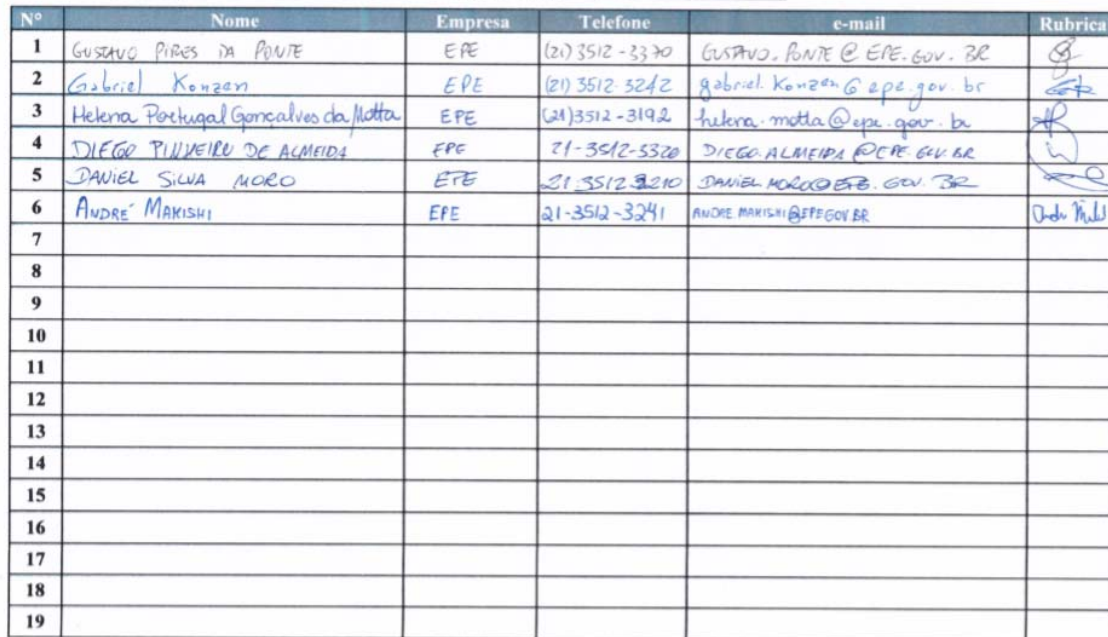 N° Nome Empresa Telefone e-mail Rubrica
1 GUSTAVO PIRES DA PONTE EPE (21) 3512-3370 GUSTAVO.PONTE@EPE.GOV.BR
2 Gabriel Konzen EPE (21) 3512-3242 gabriel.konzen@epe.gov.br
3 Helena Portugal Gonçalves da Motta EPE (21)3512-3192 helena.motta@epe.gov.br
4 DIEGO PINHEIRO DE ALMEIDA EPE 21-3512-3320 DIEGO.ALMEIDA@EPE.GOV.BR
5 DANIEL SILVA MORO EPE 21 3512 3210 DANIEL.MORO@EPE.GOV.BR
6 ANDRÉ MAKISHI EPE 21-3512-3241 ANDRE.MAKISHI@EPE.GOV.BR
7
8
9
10
11
12
13
14
15
16
17
18
19